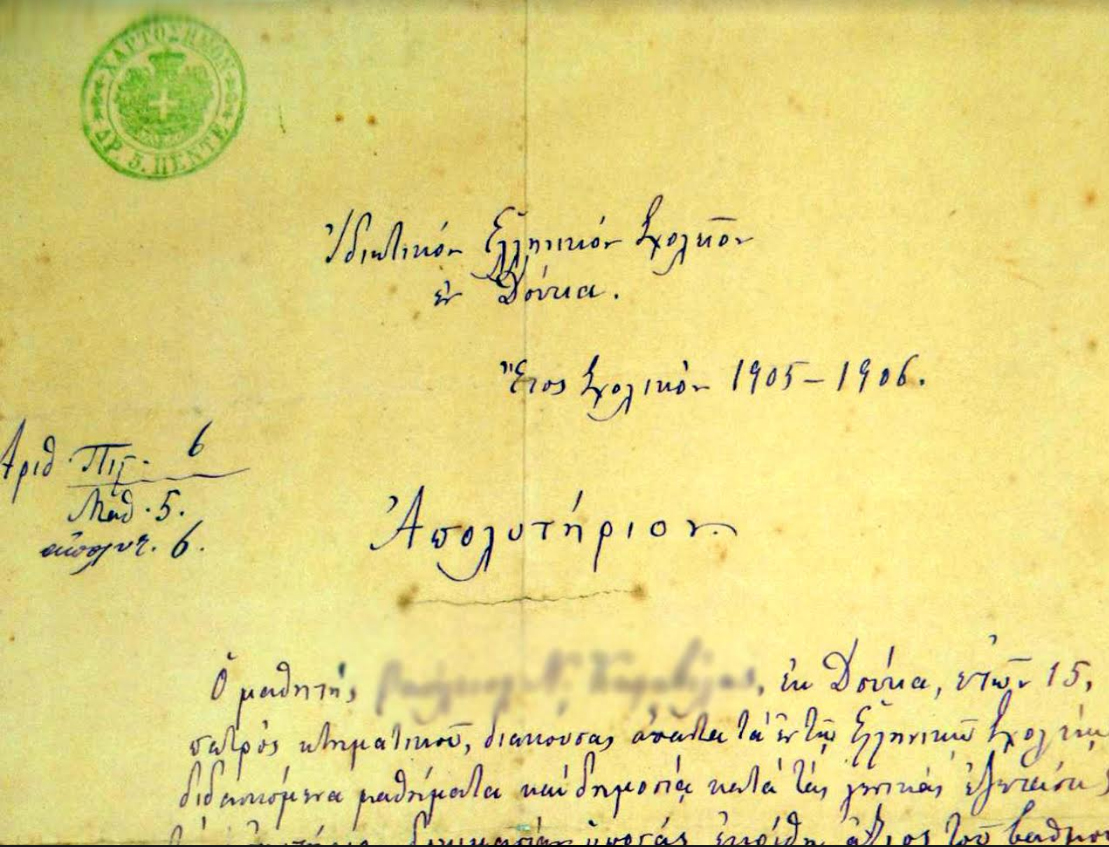 ΧΑΡΤΟΣΗΜΟΝ
ΔΡ. 5. ΠΕΝΤΕ
Ἰδιωτικόν Ἑλληνικόν Σχολεῖον
ἐν Δούκα.
Ἔτος Σχολικόν 1905-1906.
Ἀριθ. Πιστ. 6
Μαθ. 5.
ἀπολυτ. 6.
Ἀπολυτήριον.
Ὁ μαθητής , ἐκ Δούκα, ἐτῶν 15,
πατρός κτηματικοῦ, διακούσας ἅπαντα τά ἐν τῷ Ἑλληνικῷ Σχολείῳ
διδασκόμενα μαθήματα καί δημοσίᾳ κατά τάς γενικάς ἐξετάσεις
δοκιμασίαν ὑποστάς ἐκρίθη ἄξιος τοῦ βαθμοῦ